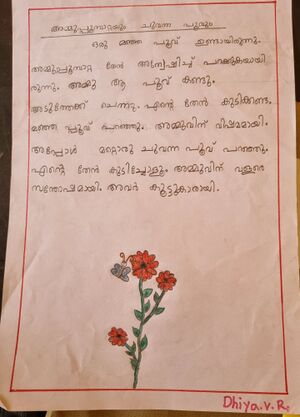 അമ്മുപ്പൂമ്പാറ്റയും ചുവന്ന പൂവും
ഒരു മഞ്ഞ പൂവ് ഉണ്ടായിരുന്നു.
അമ്മുപ്പൂമ്പാറ്റ തേൻ അന്വേഷിച്ച് പറക്കുകയായി
രുന്നു. അമ്മു ആ പൂവ് കണ്ടു.
അടുത്തേക്ക് ചെന്നു. എന്റെ തേൻ കുടിക്കണ്ട.
മഞ്ഞ പൂവ് പറഞ്ഞു. അമ്മുവിന് വിഷമമായി.
അപ്പോൾ മറ്റൊരു ചുവന്ന പൂവ് പറഞ്ഞു.
എന്റെ തേൻ കുടിച്ചോളൂ. അമ്മുവിന് വളരെ
സന്തോഷമായി. അവർ കൂട്ടുകാരായി.
Dhiya.V.R.